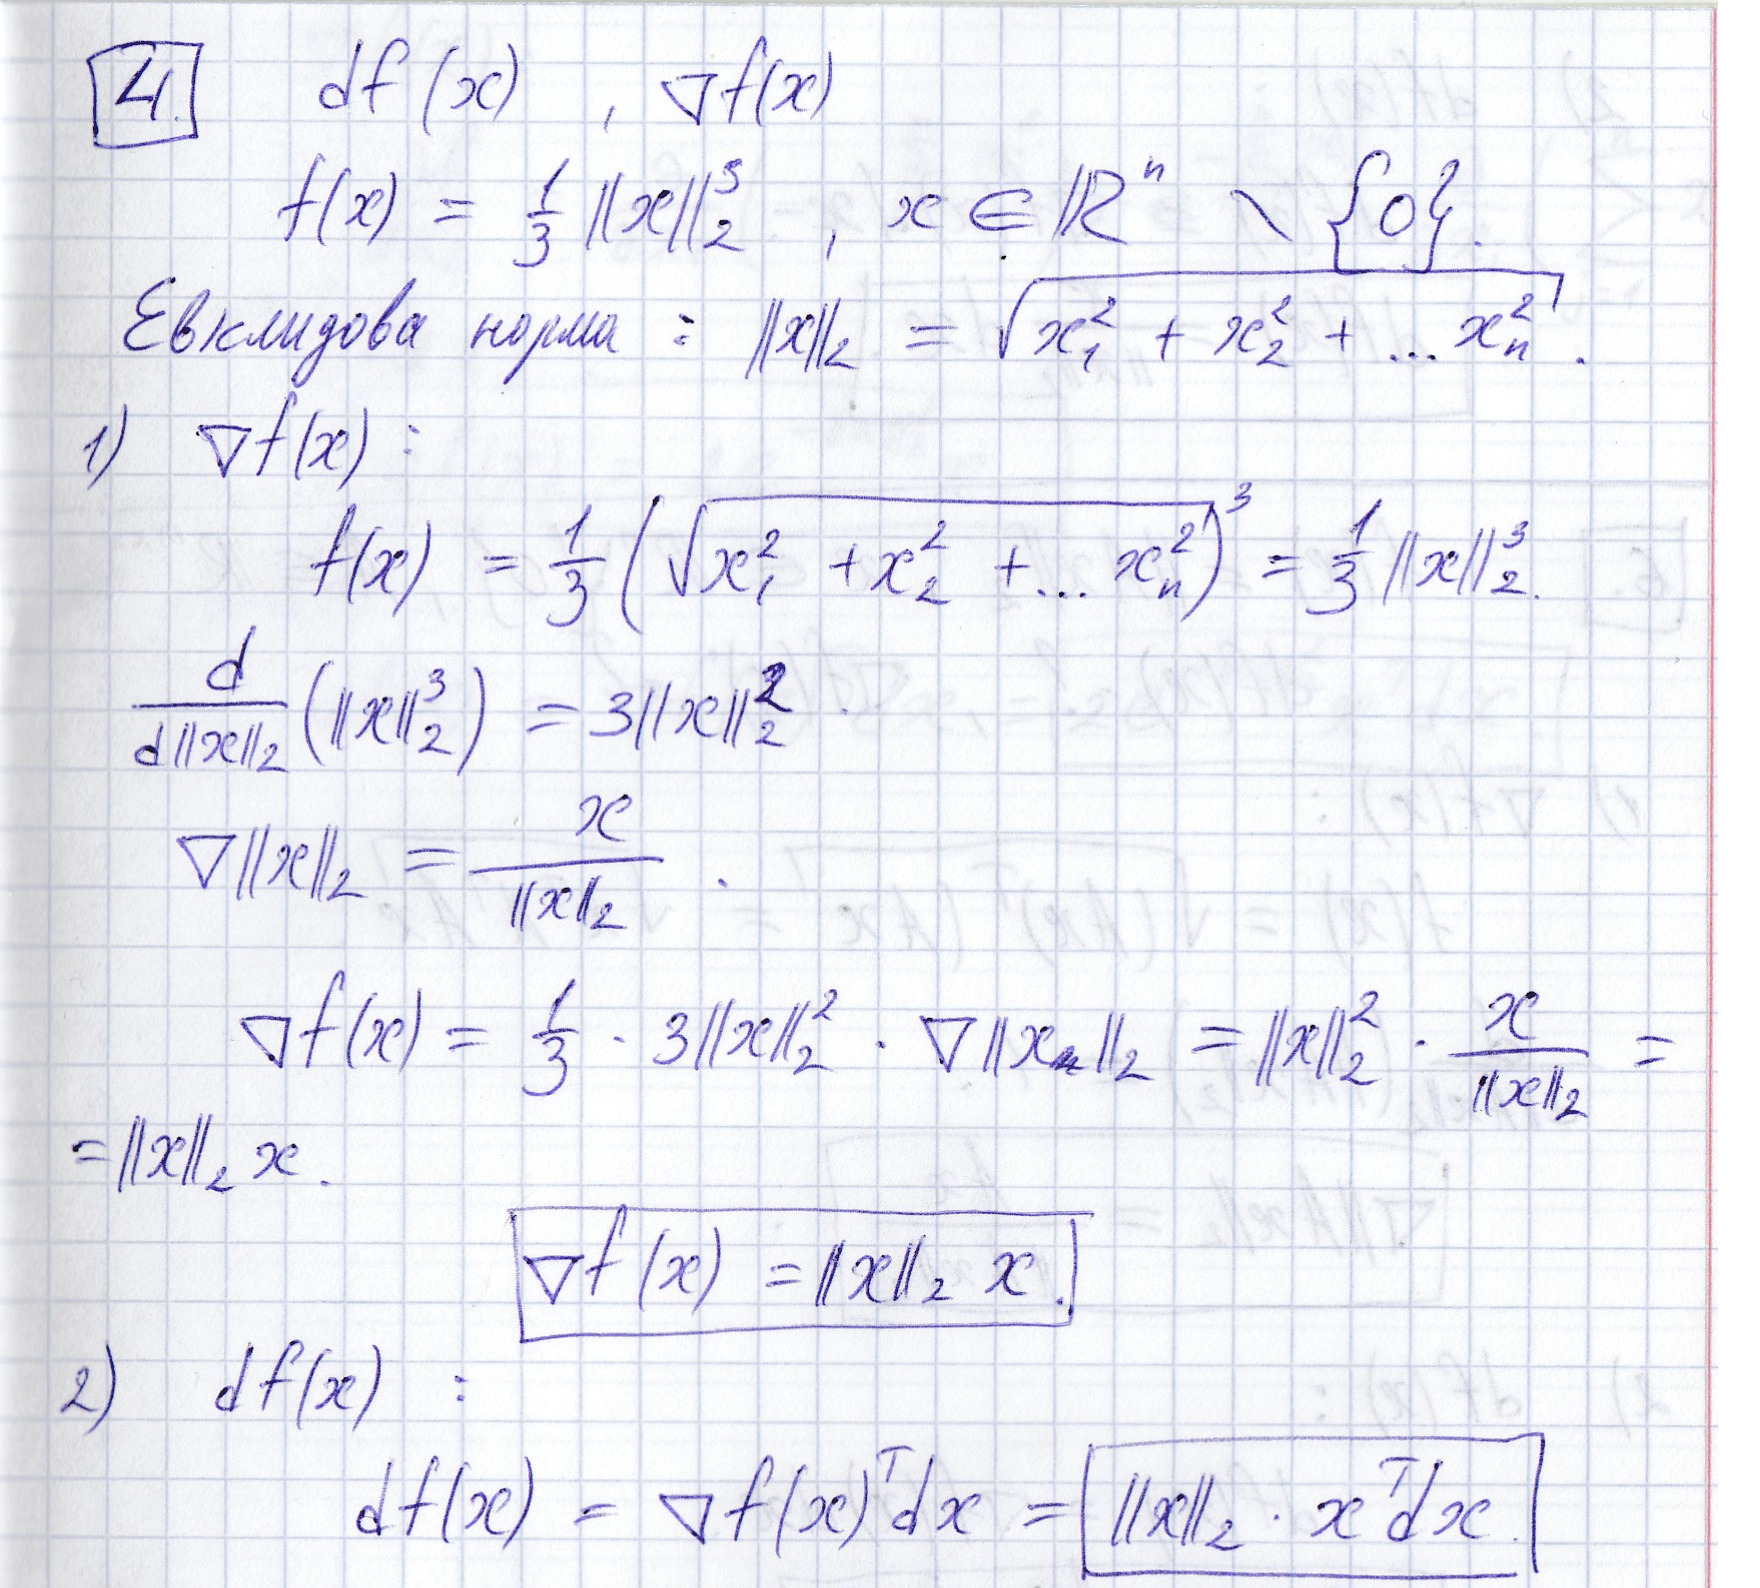 4. df(x) , ∇f(x)
f(x) = 1/3 ||x||₂³ , x ∈ ℝⁿ \ {0}.
Евклидова норма : ||x||₂ = √(x₁² + x₂² + ... xₙ²) .
1) ∇f(x) :
f(x) = 1/3 (√(x₁² + x₂² + ... xₙ²))³ = 1/3 ||x||₂³.
d/d||x||₂ (||x||₂³) = 3||x||₂² .
∇||x||₂ = x/||x||₂ .
∇f(x) = 1/3 · 3||x||₂² · ∇||x||₂ = ||x||₂² · x/||x||₂ =
= ||x||₂ x .
∇f(x) = ||x||₂ x .
2) df(x) :
df(x) = ∇f(x)ᵀdx = ||x||₂ · xᵀdx .